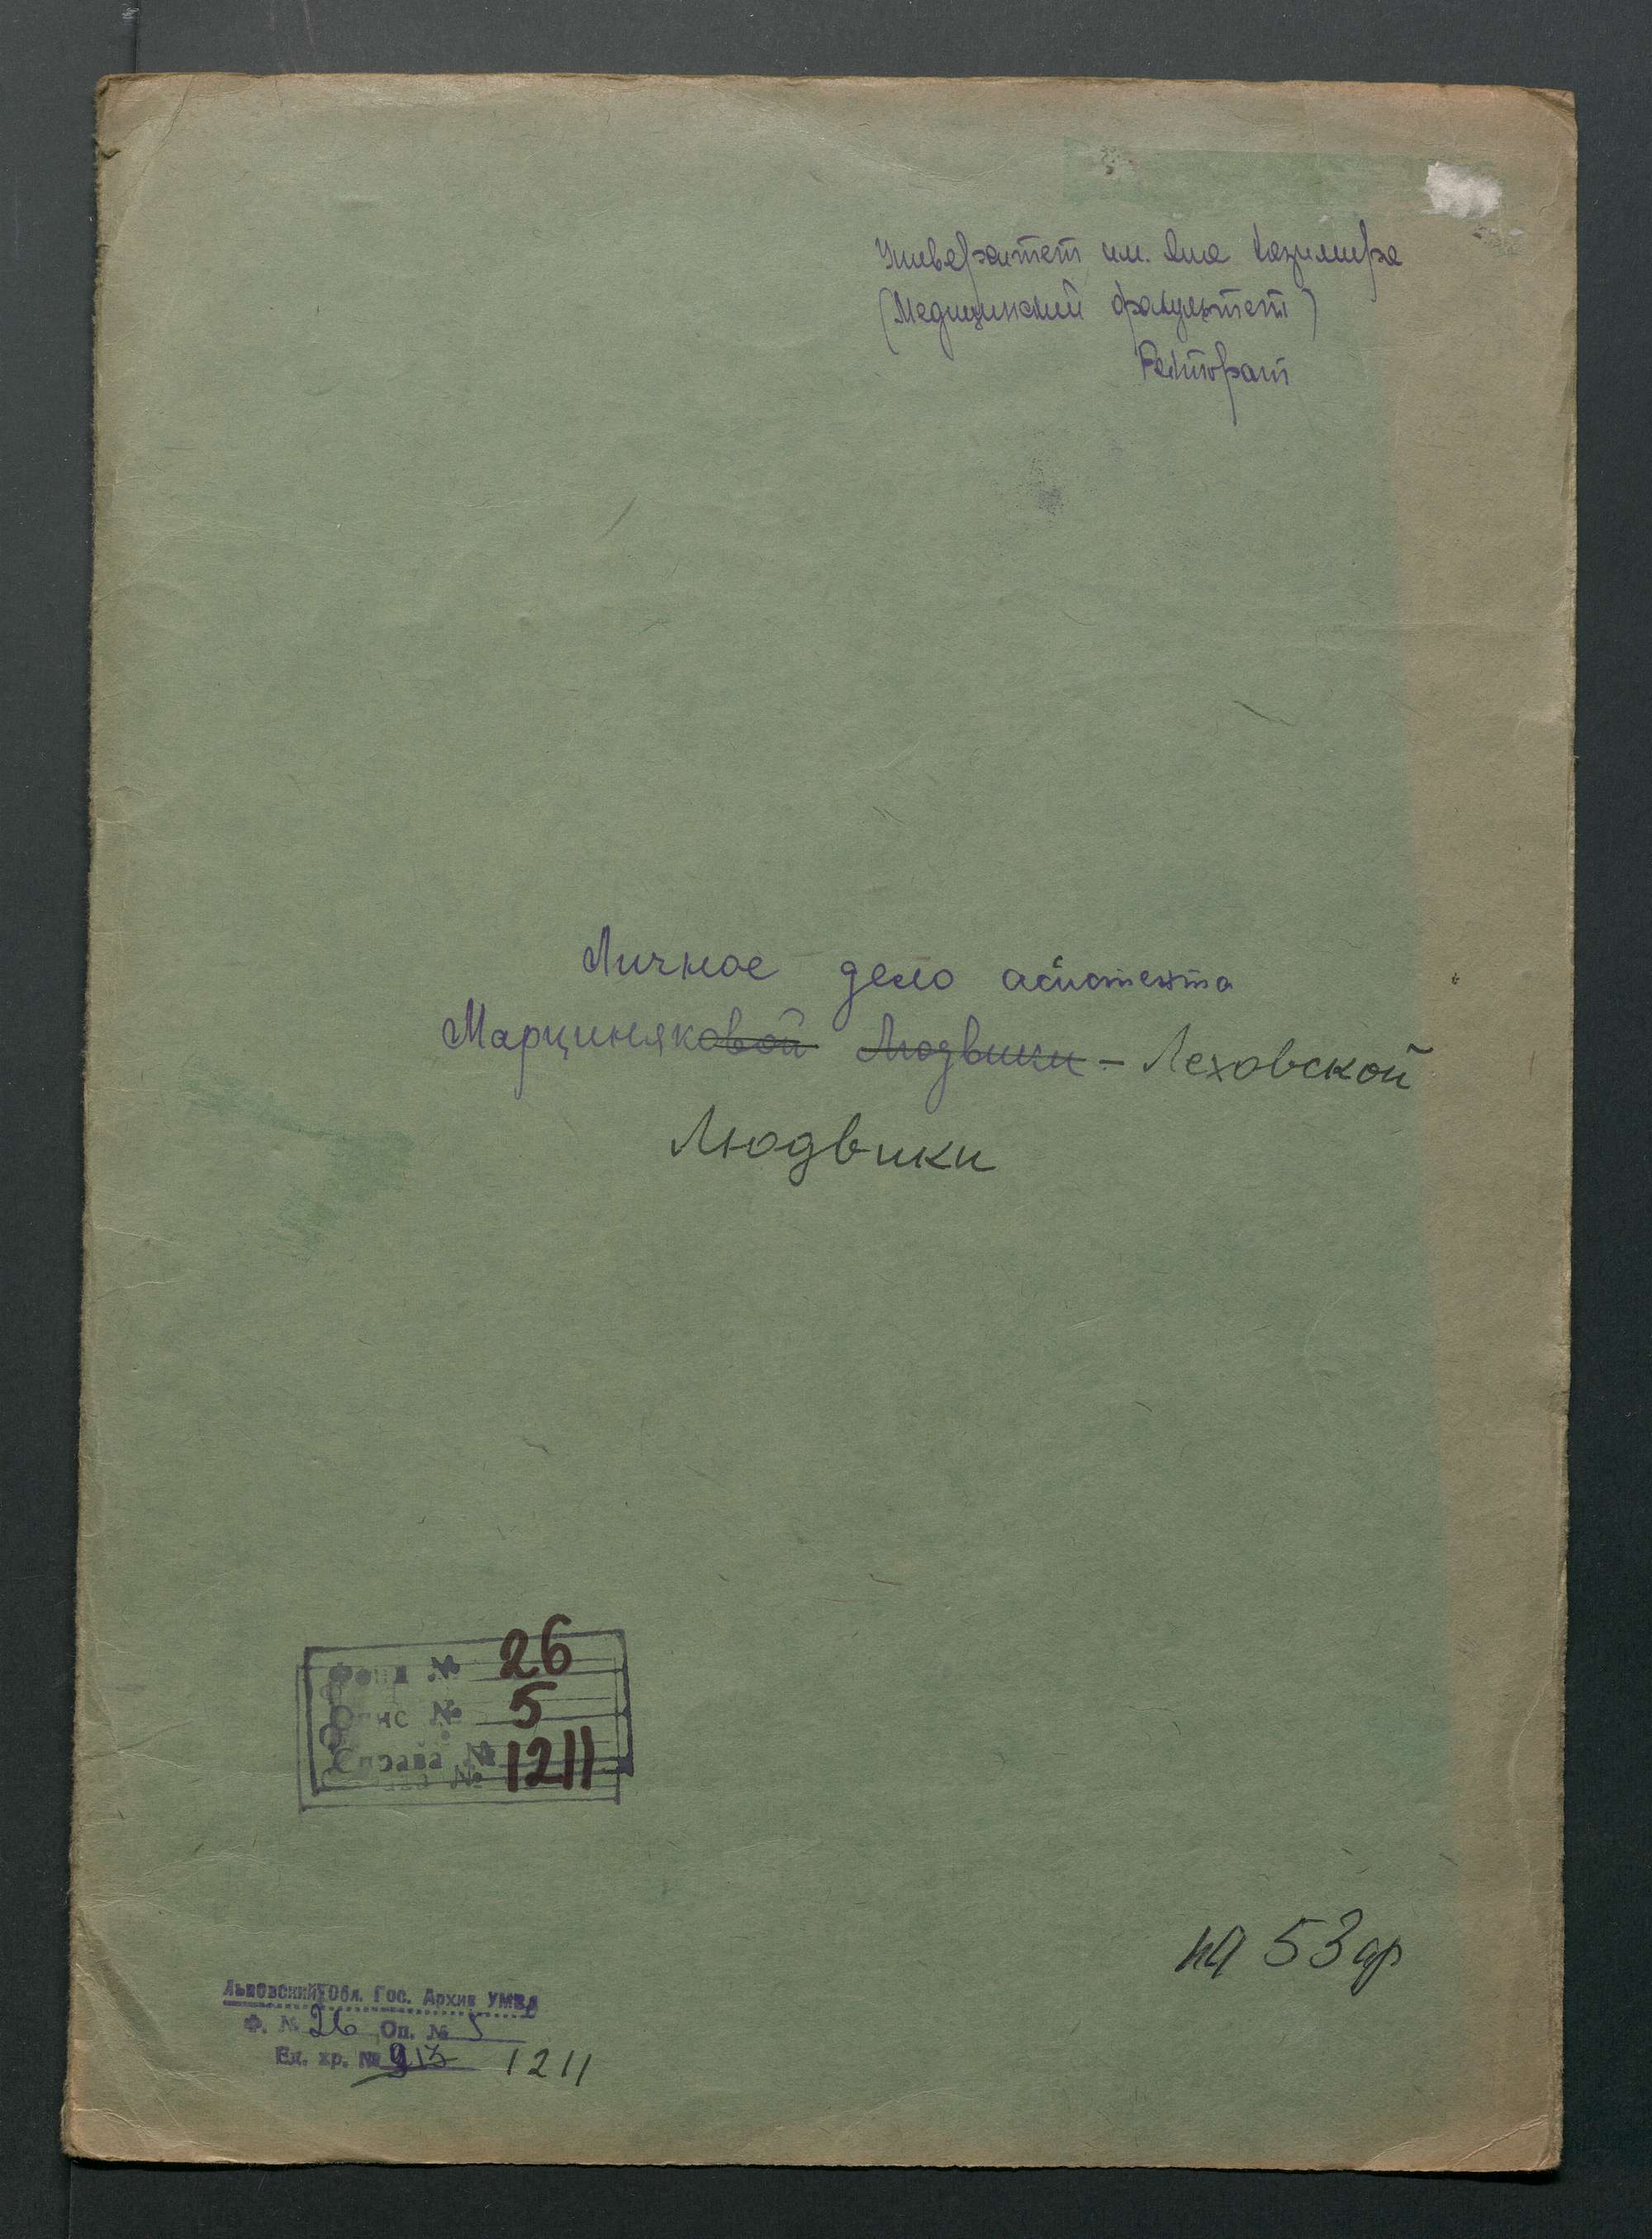 Университет им. Яна Казимира
(Медицинский факультет)
Ректорат
Личное дело асистента
Марциняковой Людвики - Леховской
Людвики
Фонд № 26
Опис № 5
Справа № 1211
на 53 ар
Львовский Обл. Гос. Архив УМВД
Ф. № 26 Оп. № 5
Ед. хр. № 913 1211